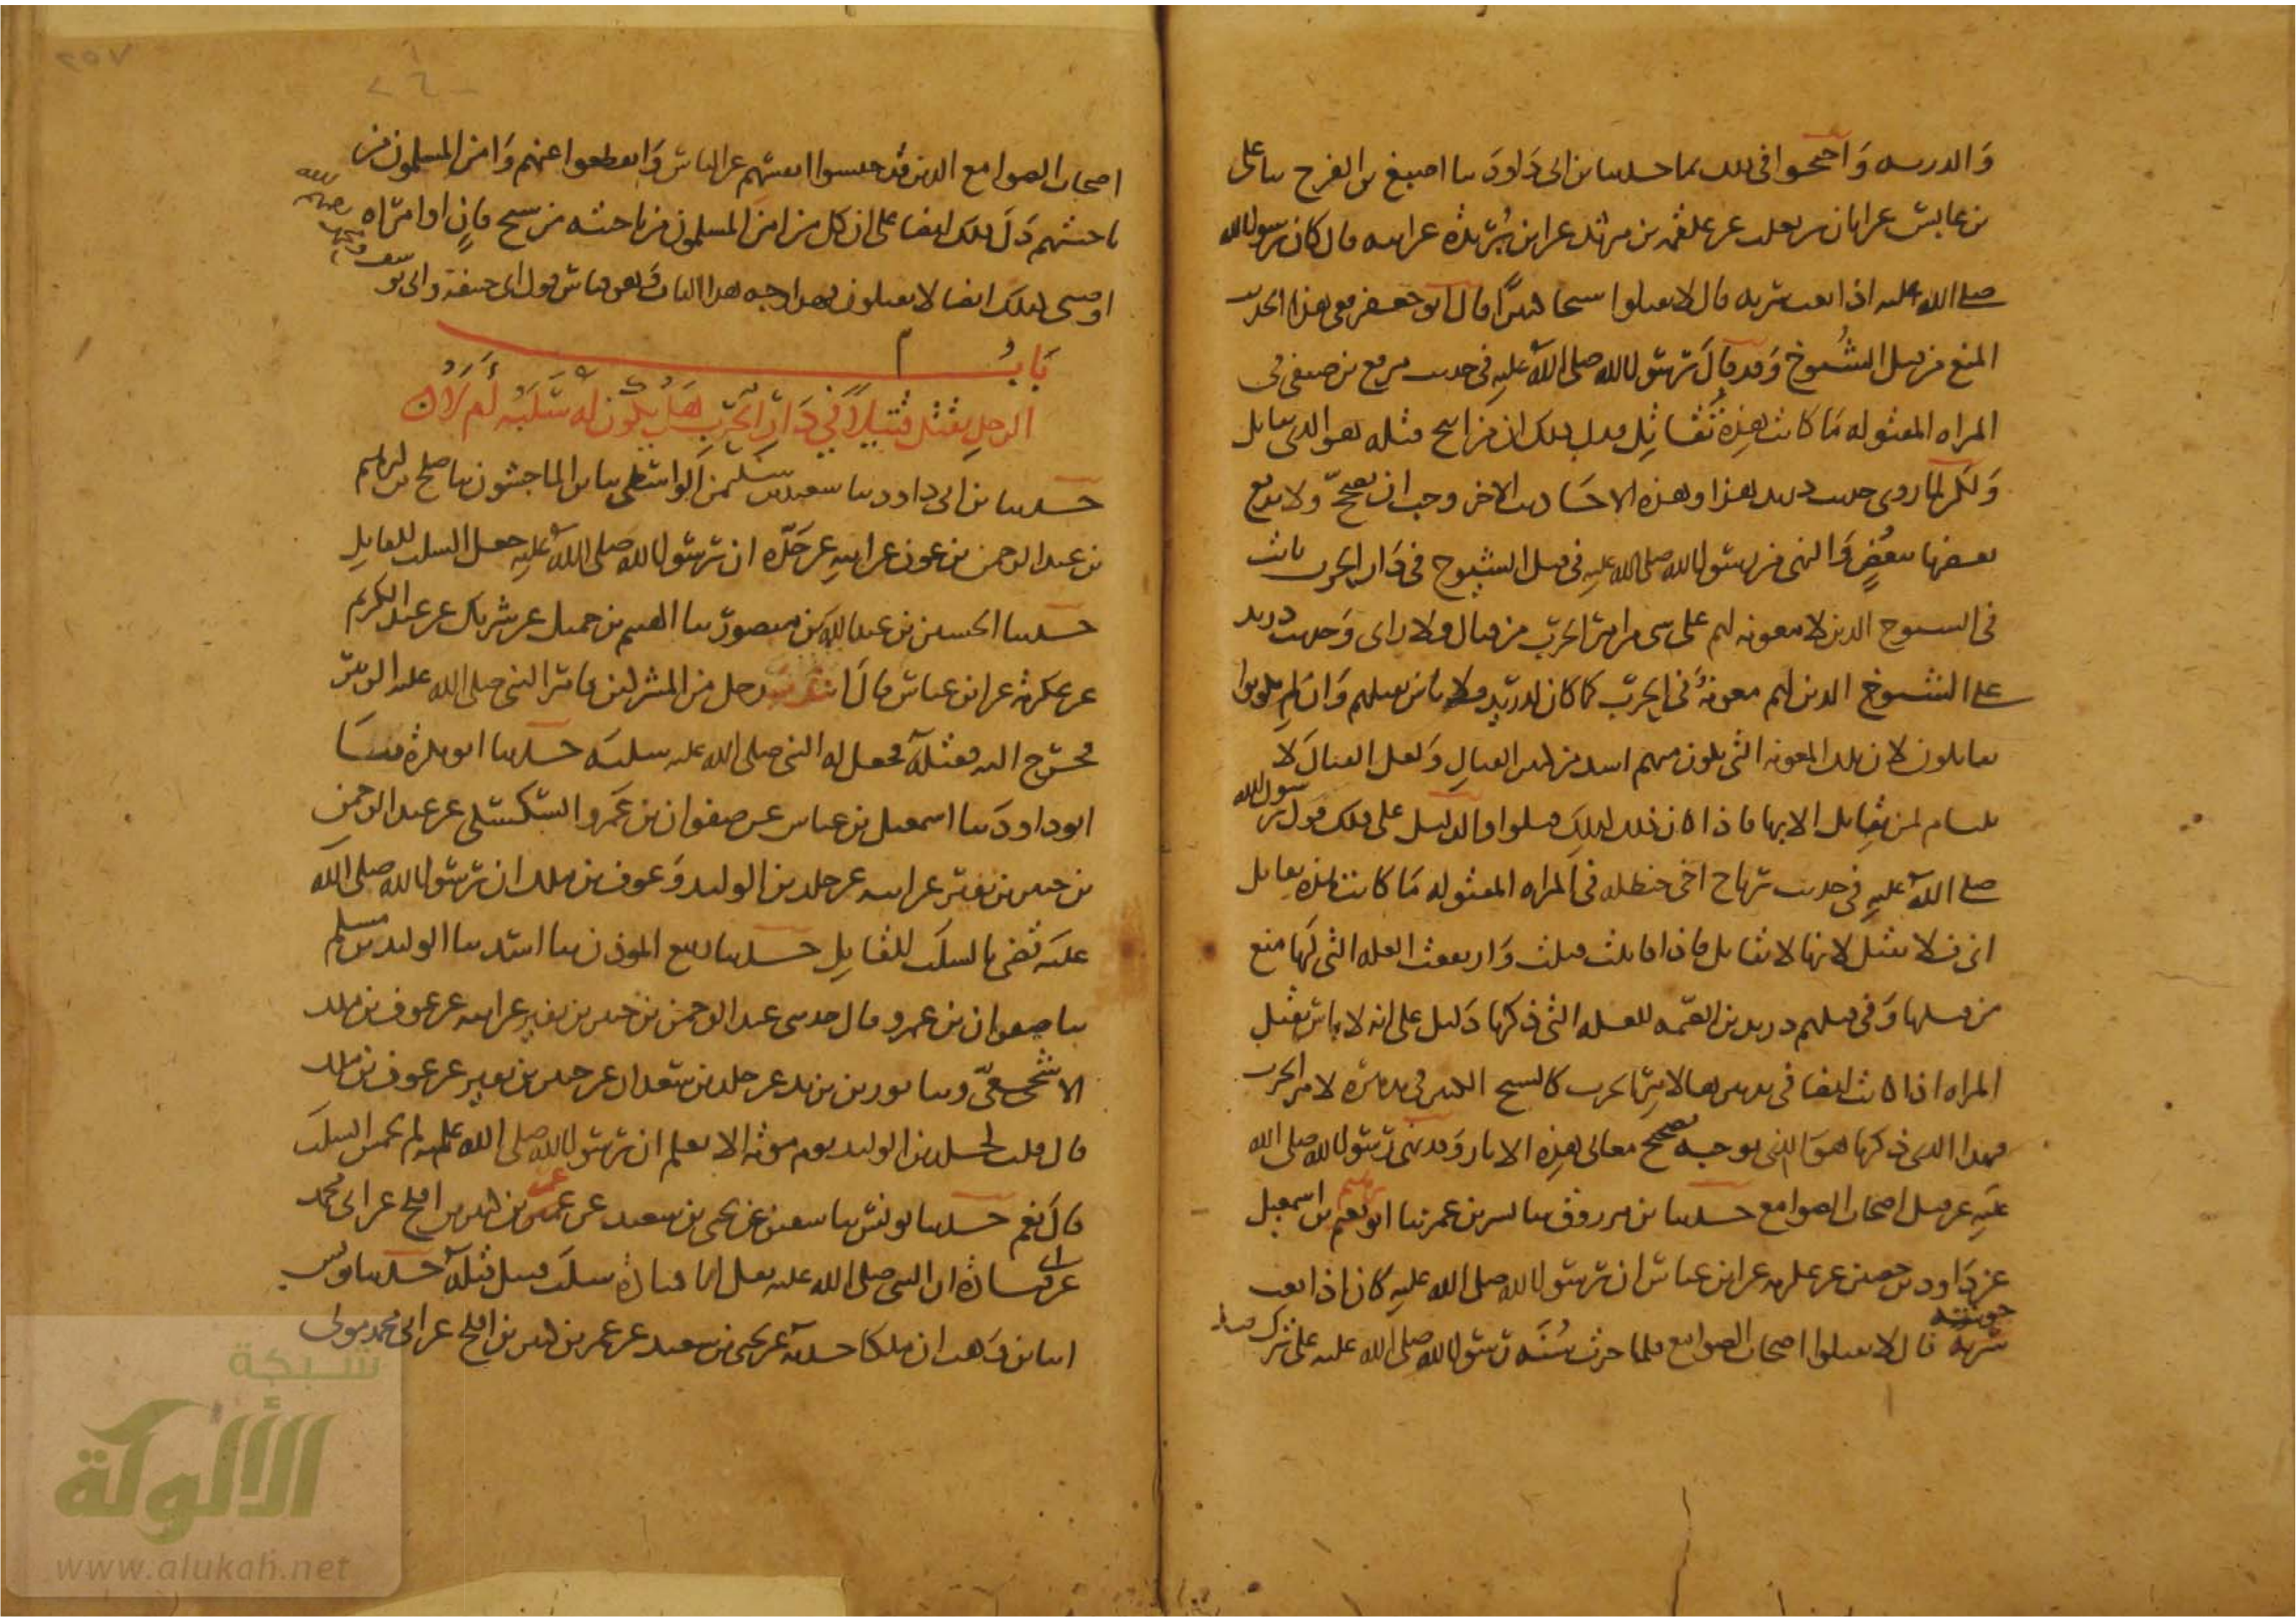 والذرية واحتجوا في ذلك بما حدثنا بن ابي داود ثنا اصبغ بن الفرج ثنا على
بن عابس عن ابان بن تعلب عن علقمة بن مرثد عن ابن بريدة عن ابيه قال كان رسول الله
صلى الله عليه اذا بعث سرية قال لا تقتلوا شيخا كبيرا قال ابو جعفر ففى هذا الحديث
المنع من قتل الشيوخ وقد قال رسول الله صلى الله عليه فى حديث مرقع بن صيفى فى
المراة المقتولة ما كانت هذه تقاتل فدل بذلك ان من ابيح قتله هو الذى يقاتل
ولكن لما روى حديث دريد هذا وهذه الاحاديث الاخر وجب ان تصحح ولا يدفع
بعضها ببعض والنهى من رسول الله صلى الله عليه فى قتل الشيوخ فى دار الحرب ثابت
فى الشيوخ الذين لا معونة لهم على شى من امر الحرب من قتال ولا راى وحديث دريد
على الشيوخ الذين لهم معونة فى الحرب كما كان لدريد فلا باس بقتلهم وان لم يكونوا
يقاتلون لان تلك المعونة التى تكون منهم اشد من كثير القتال ولعل القتال لا
يلتام لمن يقاتل الا بها فاذا كان ذلك كذلك قتلوا والدليل على ذلك قول رسول الله
صلى الله عليه فى حديث رباح اخى حنظلة فى المراة المقتولة ما كانت هذه تقاتل
اى فلا تقتل لانها لا تقاتل فاذا قاتلت قتلت وارتفعت العلة التى لها منع
من قتلها وفى قتلهم دريد بن الصمة للعلة التى ذكرنا دليل على انه لا باس بقتل
المراة اذا كانت ايضا فى تدبيرها لامر الحرب كالشيخ الكبير فى تدبيره لامر الحرب
فهذا الذى ذكرنا هو الذى يوجبه تصحيح معانى هذه الاثار وقد نهى رسول الله صلى الله
عليه عن قتل اصحاب الصوامع حدثنا بن مرزوق ثنا بشر بن عمر ثنا ابراهيم بن اسمعيل
عن داود بن حصين عن عكرمة عن ابن عباس ان رسول الله صلى الله عليه كان اذا بعث
جيوشه قال لا تقتلوا اصحاب الصوامع فلما جرت سنة رسول الله صلى الله عليه على ترك قتل
اصحاب الصوامع الذين قد حبسوا انفسهم عن الناس وانقطعوا عنهم وامن المسلمون من
ناحيتهم دل ذلك ايضا على ان كل من امن المسلمون من ناحيته من شيخ فان او امراة
او صبى كذلك ايضا لا يقتلون فهذا وجه هذا الباب وهو قياس قول ابى حنيفة وابى يوسف
باب
الرجل يقتل قتيلا فى دار الحرب هل يكون له سلبه ام لا
حدثنا بن ابى داود ثنا سعيد بن سليمن الواسطى ثنا بن الماجشون ثنا صالح بن ابرهيم
بن عبد الرحمن بن عوف عن ابيه عن جده ان رسول الله صلى الله عليه جعل السلب للقاتل
حدثنا الحسين بن عبد الله بن منصور ثنا الهيثم بن جميل عن شريك عن عبد الكريم
عن عكرمة عن ابن عباس قال انتدب رجل من المشركين فامر النبى صلى الله عليه الزبير
فخرج اليه فقتله فجعل له النبى صلى الله عليه سلبه حدثنا ابو بكرة ثنا
ابو داود ثنا اسمعيل بن عياش عن صفوان بن عمرو السكسكى عن عبد الرحمن
بن جبير بن نفير عن ابيه عن خلد بن الوليد وعوف بن ملك ان رسول الله صلى الله
عليه قضى بالسلب للقاتل حدثنا ربيع الموذن ثنا اسد ثنا الوليد بن مسلم
ثنا صفوان بن عمرو قال حدثنى عبد الرحمن بن جبير بن نفير عن ابيه عن عوف بن ملك
الاشجعى وثنا ثور بن يزيد عن خلد بن معدان عن جبير بن نفير عن عوف بن ملك
قال قلت لخلد بن الوليد يوم موتة الا تعلم ان رسول الله صلى الله عليه لم يخمس السلب
قال نعم حدثنا يونس ثنا سفين عن يحيى بن سعيد عن عمر بن كثير بن افلح عن ابى محمد
عن ابى قتادة ان النبى صلى الله عليه نفل ابا قتادة سلب قتيل قتله حدثنا يونس
انبا بن وهب ان ملكا حدثه عن يحيى بن سعيد عن عمر بن كثير بن افلح عن ابى محمد مولى
شبكة
الألوكة
www.alukah.net